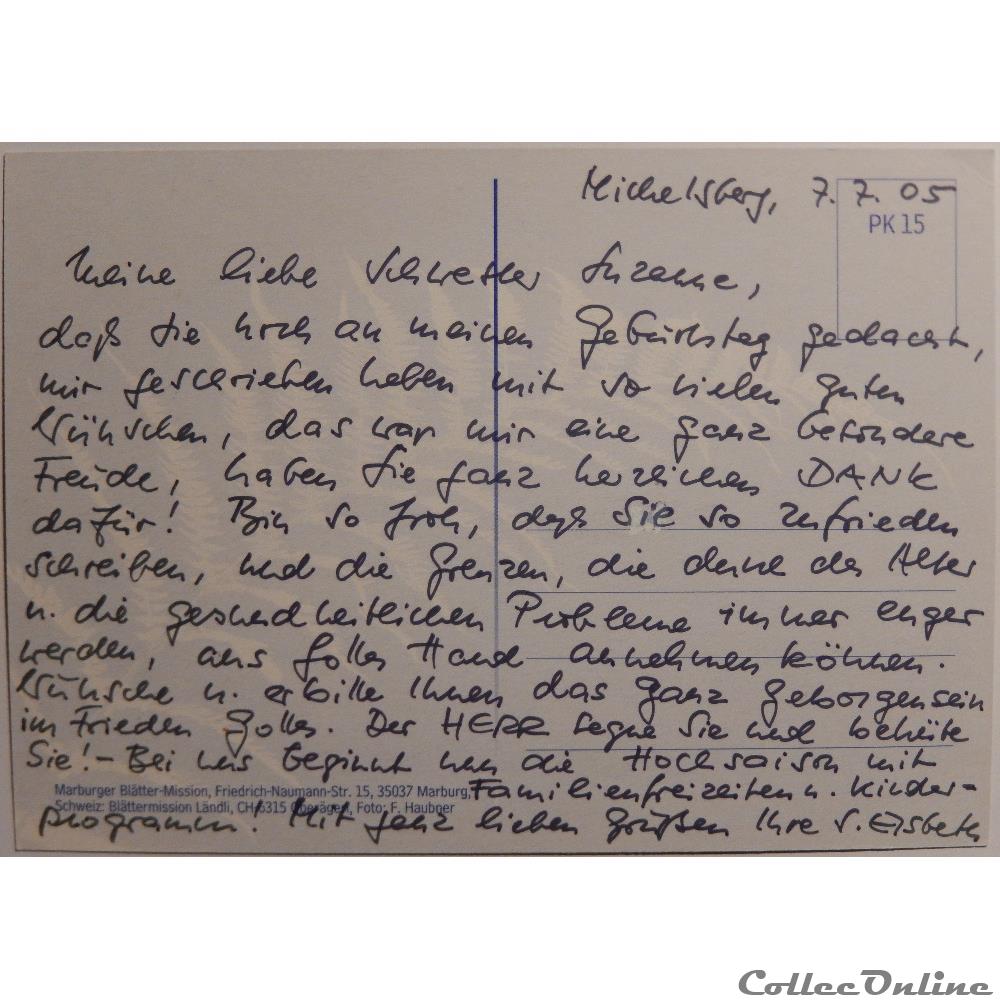 Michelsberg, 7.7.05
PK 15
Meine liebe Schwester Suzanne,
daß Sie noch an meinen Geburtstag gedacht,
mir geschrieben haben mit so vielen guten
Wünschen, das war mir eine ganz besondere
Freude, haben Sie ganz herzlichen DANK
dafür! Bin so froh, daß Sie so zufrieden
schreiben, und die Grenzen, die durch das Alter
u. die gesundheitlichen Probleme immer enger
werden, aus Gottes Hand annehmen können.
Wünsche u. erbitte Ihnen das ganz Geborgensein
im Frieden Gottes. Der HERR segne Sie und behüte
Sie! – Bei uns beginnt nun die Hochsaison mit
Marburger Blätter-Mission, Friedrich-Naumann-Str. 15, 35037 Marburg,
Familienfreizeiten u. Kinder-
Schweiz: Blättermission Ländli, CH-6315 Oberägeri, Foto: F. Haubner
programm! Mit ganz lieben Grüßen Ihre S. Elsbeth
CollecOnline